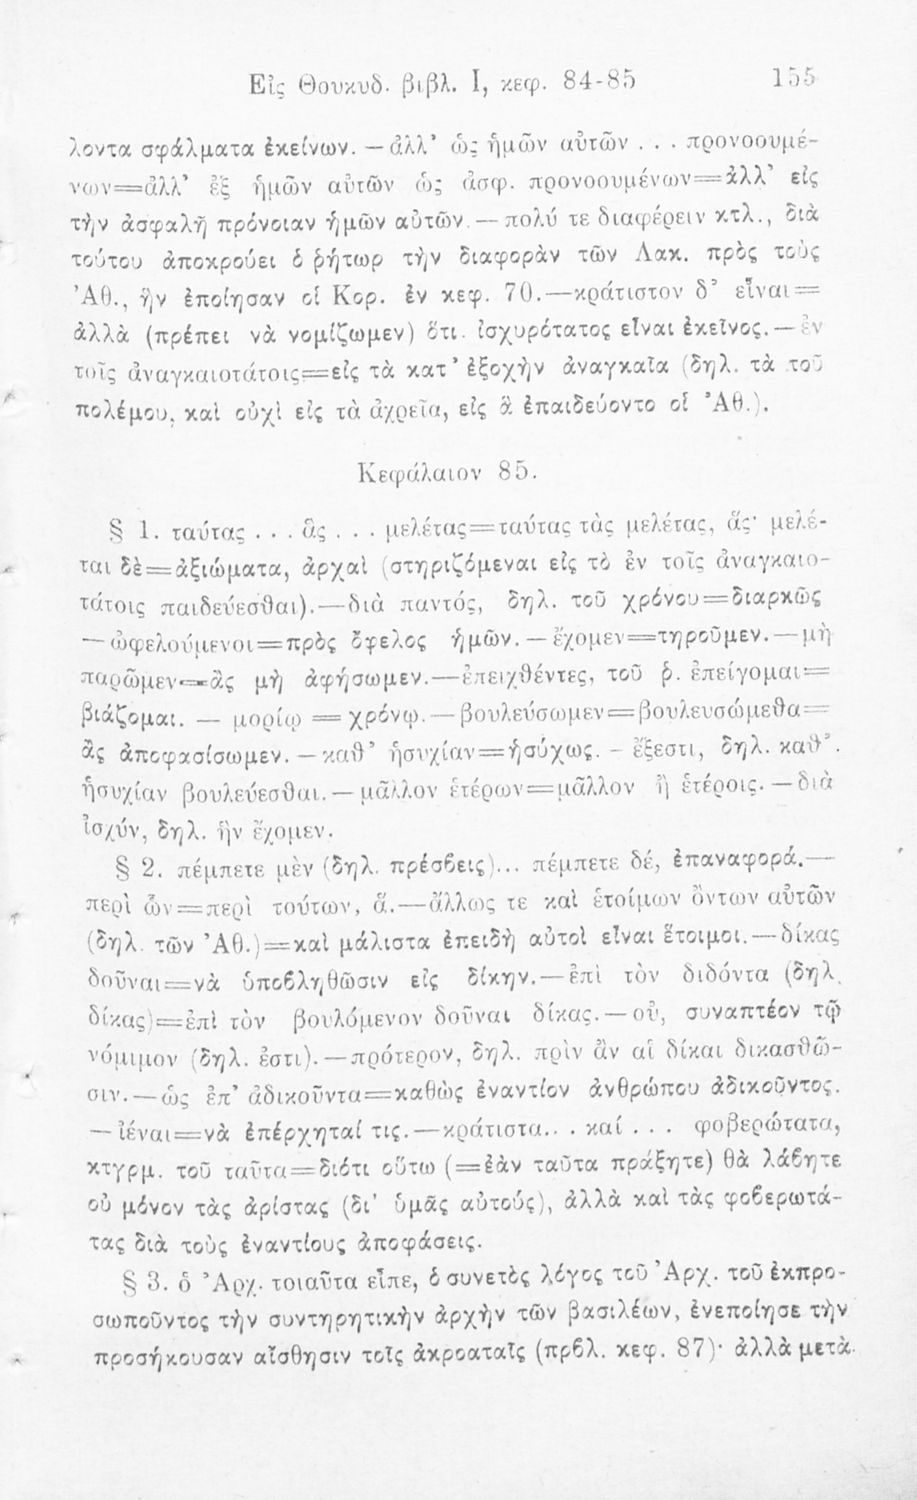 Εἰς Θουκυδ. βιβλ. I, κεφ. 84-85 155
λοντα σφάλματα ἐκείνων. — ἀλλ' ὡς ἡμῶν αὐτῶν . . . προνοουμέ-
νων=ἀλλ' ἐξ ἡμῶν αὐτῶν ὡς ἀσφ. προνοουμένων=ἀλλ' εἰς
τὴν ἀσφαλῆ πρόνοιαν ἡμῶν αὐτῶν. — πολύ τε διαφέρειν κτλ., διὰ
τούτου ἀποκρούει ὁ ῥήτωρ τὴν διαφορὰν τῶν Λακ. πρὸς τοὺς
'Αθ., ἣν ἐποίησαν οἱ Κορ. ἐν κεφ. 70.—κράτιστον δ' εἶναι=
ἀλλὰ (πρέπει νὰ νομίζωμεν) ὅτι ἰσχυρότατος εἶναι ἐκεῖνος.—ἐν
τοῖς ἀναγκαιοτάτοις=εἰς τὰ κατ' ἐξοχὴν ἀναγκαῖα (δηλ. τὰ τοῦ
πολέμου, καὶ οὐχὶ εἰς τὰ ἀχρεῖα, εἰς ἃ ἐπαιδεύοντο οἱ 'Αθ.).
Κεφάλαιον 85.
§ 1. ταύτας . . . ἃς . . . μελέτας=ταύτας τὰς μελέτας, ἅς· μελέ-
ται δὲ=ἀξιώματα, ἀρχαὶ (στηριζόμεναι εἰς τὸ ἐν τοῖς ἀναγκαιο-
τάτοις παιδεύεσθαι).—διὰ παντός, δηλ. τοῦ χρόνου=διαρκῶς
—ὠφελούμενοι=πρὸς ὄφελος ἡμῶν.—ἔχομεν=τηροῦμεν.—μὴ
παρῶμεν=ἂς μὴ ἀφήσωμεν.—ἐπειχθέντες, τοῦ ῥ. ἐπείγομαι=
βιάζομαι. — μορίῳ = χρόνῳ.—βουλεύσωμεν=βουλευσώμεθα=
ἂς ἀποφασίσωμεν.—καθ' ἡσυχίαν=ἡσύχως. - ἔξεστι, δηλ. καθ'
ἡσυχίαν βουλεύεσθαι.—μᾶλλον ἑτέρων=μᾶλλον ἢ ἑτέροις.—διὰ
ἰσχύν, δηλ. ἣν ἔχομεν.
§ 2. πέμπετε μὲν (δηλ. πρέσβεις)... πέμπετε δέ, ἐπαναφορά.—
περὶ ὧν=περὶ τούτων, ἅ.—ἄλλως τε καὶ ἑτοίμων ὄντων αὐτῶν
(δηλ. τῶν 'Αθ.)=καὶ μάλιστα ἐπειδὴ αὐτοὶ εἶναι ἕτοιμοι.—δίκας
δοῦναι=νὰ ὑποβληθῶσιν εἰς δίκην.—ἐπὶ τὸν διδόντα (δηλ.
δίκας)=ἐπὶ τὸν βουλόμενον δοῦναι δίκας.—οὐ, συναπτέον τῷ
νόμιμον (δηλ. ἐστι).—πρότερον, δηλ. πρὶν ἂν αἱ δίκαι δικασθῶ-
σιν.—ὡς ἐπ' ἀδικοῦντα=καθὼς ἐναντίον ἀνθρώπου ἀδικοῦντος.
—ἰέναι=νὰ ἐπέρχηταί τις.—κράτιστα.. . καί . . . φοβερώτατα,
κτγρμ. τοῦ ταῦτα=διότι οὕτω (=ἐὰν ταῦτα πράξητε) θὰ λάβητε
οὐ μόνον τὰς ἀρίστας (δι' ὑμᾶς αὐτούς), ἀλλὰ καὶ τὰς φοβερωτά-
τας διὰ τοὺς ἐναντίους ἀποφάσεις.
§ 3. ὁ 'Αρχ. τοιαῦτα εἶπε, ὁ συνετὸς λόγος τοῦ 'Αρχ. τοῦ ἐκπρο-
σωποῦντος τὴν συντηρητικὴν ἀρχὴν τῶν βασιλέων, ἐνεποίησε τὴν
προσήκουσαν αἴσθησιν τοῖς ἀκροαταῖς (πρβλ. κεφ. 87)· ἀλλὰ μετὰ